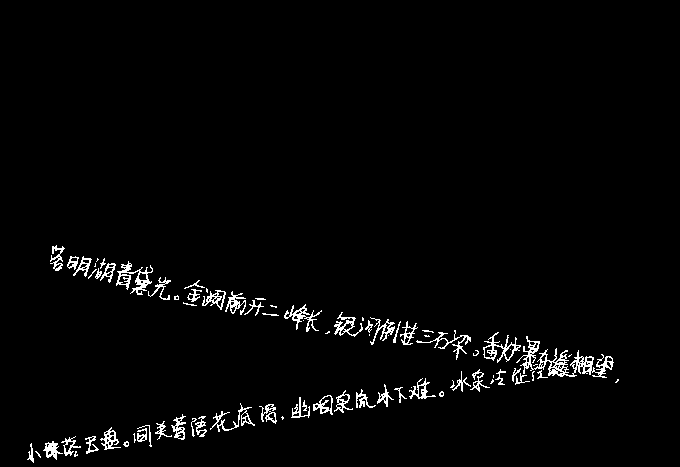 落明湖青黛光。金阙前开二峰长,银河倒挂三石梁。香炉瀑布遥相望,
小珠落玉盘。间关莺语花底滑,幽咽泉流冰下难。冰泉冷